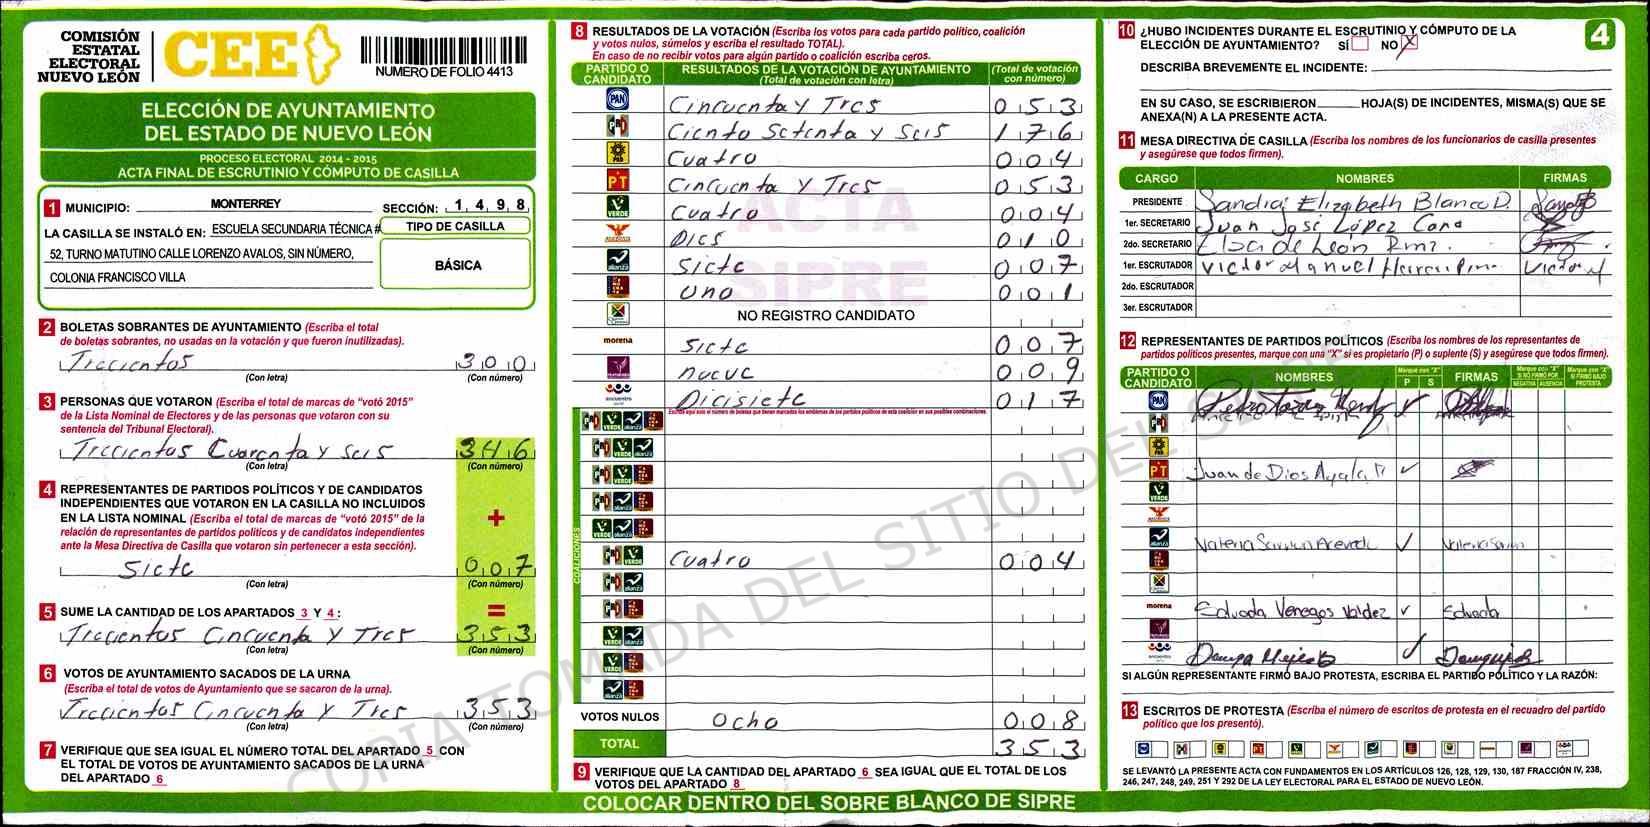 COMISIÓN
ESTATAL
ELECTORAL
NUEVO LEÓN
CEE
NUMERO DE FOLIO 4413
ELECCIÓN DE AYUNTAMIENTO
DEL ESTADO DE NUEVO LEÓN
PROCESO ELECTORAL 2014 - 2015
ACTA FINAL DE ESCRUTINIO Y CÓMPUTO DE CASILLA
1 MUNICIPIO: MONTERREY SECCIÓN: 1 4 9 8
LA CASILLA SE INSTALÓ EN: ESCUELA SECUNDARIA TÉCNICA #
52, TURNO MATUTINO CALLE LORENZO AVALOS, SIN NÚMERO,
COLONIA FRANCISCO VILLA
TIPO DE CASILLA
BÁSICA
2 BOLETAS SOBRANTES DE AYUNTAMIENTO (Escriba el total
de boletas sobrantes, no usadas en la votación y que fueron inutilizadas).
Trecientos 300
(Con letra) (Con número)
3 PERSONAS QUE VOTARON (Escriba el total de marcas de “votó 2015”
de la Lista Nominal de Electores y de las personas que votaron con su
sentencia del Tribunal Electoral).
Trecientos Cuarenta y Seis 346
(Con letra) (Con número)
4 REPRESENTANTES DE PARTIDOS POLÍTICOS Y DE CANDIDATOS
INDEPENDIENTES QUE VOTARON EN LA CASILLA NO INCLUIDOS
EN LA LISTA NOMINAL (Escriba el total de marcas de “votó 2015” de la
relación de representantes de partidos políticos y de candidatos independientes
ante la Mesa Directiva de Casilla que votaron sin pertenecer a esta sección).
+
Siete 007
(Con letra) (Con número)
5 SUME LA CANTIDAD DE LOS APARTADOS 3 Y 4 : =
Trecientos Cincuenta y Tres 353
(Con letra) (Con número)
6 VOTOS DE AYUNTAMIENTO SACADOS DE LA URNA
(Escriba el total de votos de Ayuntamiento que se sacaron de la urna).
Trecientos Cincuenta y Tres 353
(Con letra) (Con número)
7 VERIFIQUE QUE SEA IGUAL EL NÚMERO TOTAL DEL APARTADO 5 CON
EL TOTAL DE VOTOS DE AYUNTAMIENTO SACADOS DE LA URNA
DEL APARTADO 6
8 RESULTADOS DE LA VOTACIÓN (Escriba los votos para cada partido político, coalición
y votos nulos, súmelos y escriba el resultado TOTAL).
En caso de no recibir votos para algún partido o coalición escriba ceros.
PARTIDO O CANDIDATO
RESULTADOS DE LA VOTACIÓN DE AYUNTAMIENTO
(Total de votación con letra)
(Total de votación con número)
PAN Cincuenta y Tres 053
PRI Ciento Setenta y Seis 176
PRD Cuatro 004
PT Cincuenta y Tres 053
VERDE Cuatro 004
Dies 010
alianza Siete 007
Uno 001
NO REGISTRO CANDIDATO
morena Siete 007
nueve 009
encuentro Dicisiete 017
Escriba aquí solo el número de boletas que tienen marcados los emblemas de los partidos políticos de esta coalición en sus posibles combinaciones.
COALICIONES
PRI VERDE Cuatro 004
VOTOS NULOS Ocho 008
TOTAL 353
9 VERIFIQUE QUE LA CANTIDAD DEL APARTADO 6 SEA IGUAL QUE EL TOTAL DE LOS
VOTOS DEL APARTADO 8
COLOCAR DENTRO DEL SOBRE BLANCO DE SIPRE
ACTA
SIPRE
COPIA TOMADA DEL SITIO DEL SIPRE
10 ¿HUBO INCIDENTES DURANTE EL ESCRUTINIO Y CÓMPUTO DE LA
ELECCIÓN DE AYUNTAMIENTO? SÍ NO X
4
DESCRIBA BREVEMENTE EL INCIDENTE:
EN SU CASO, SE ESCRIBIERON HOJA(S) DE INCIDENTES, MISMA(S) QUE SE
ANEXA(N) A LA PRESENTE ACTA.
11 MESA DIRECTIVA DE CASILLA (Escriba los nombres de los funcionarios de casilla presentes
y asegúrese que todos firmen).
CARGO NOMBRES FIRMAS
PRESIDENTE Sandra Elizabeth Blanco D.
1er. SECRETARIO Juan José López Cano
2do. SECRETARIO Elsa de León Rmz.
1er. ESCRUTADOR Victor Manuel
2do. ESCRUTADOR
3er. ESCRUTADOR
12 REPRESENTANTES DE PARTIDOS POLÍTICOS (Escriba los nombres de los representantes de
partidos políticos presentes, marque con “X” si es propietario (P) o suplente (S) y asegúrese que todos firmen).
PARTIDO O CANDIDATO NOMBRES
Marque con “X” P S
FIRMAS
Marque con “X” SI NO FIRMÓ POR: NEGATIVA AUSENCIA
Marque con “X” SI FIRMÓ BAJO PROTESTA
PAN
PRI
PRD
PT Juan de Dios Ayala
VERDE
alianza Valeria
morena Salvada Venegas Valdez Salvada
encuentro
SI ALGÚN REPRESENTANTE FIRMÓ BAJO PROTESTA, ESCRIBA EL PARTIDO POLÍTICO Y LA RAZÓN:
13 ESCRITOS DE PROTESTA (Escriba el número de escritos de protesta en el recuadro del partido
político que los presentó).
SE LEVANTÓ LA PRESENTE ACTA CON FUNDAMENTOS EN LOS ARTÍCULOS 126, 128, 129, 130, 187 FRACCIÓN IV, 238,
246, 247, 248, 249, 251 Y 292 DE LA LEY ELECTORAL PARA EL ESTADO DE NUEVO LEÓN.